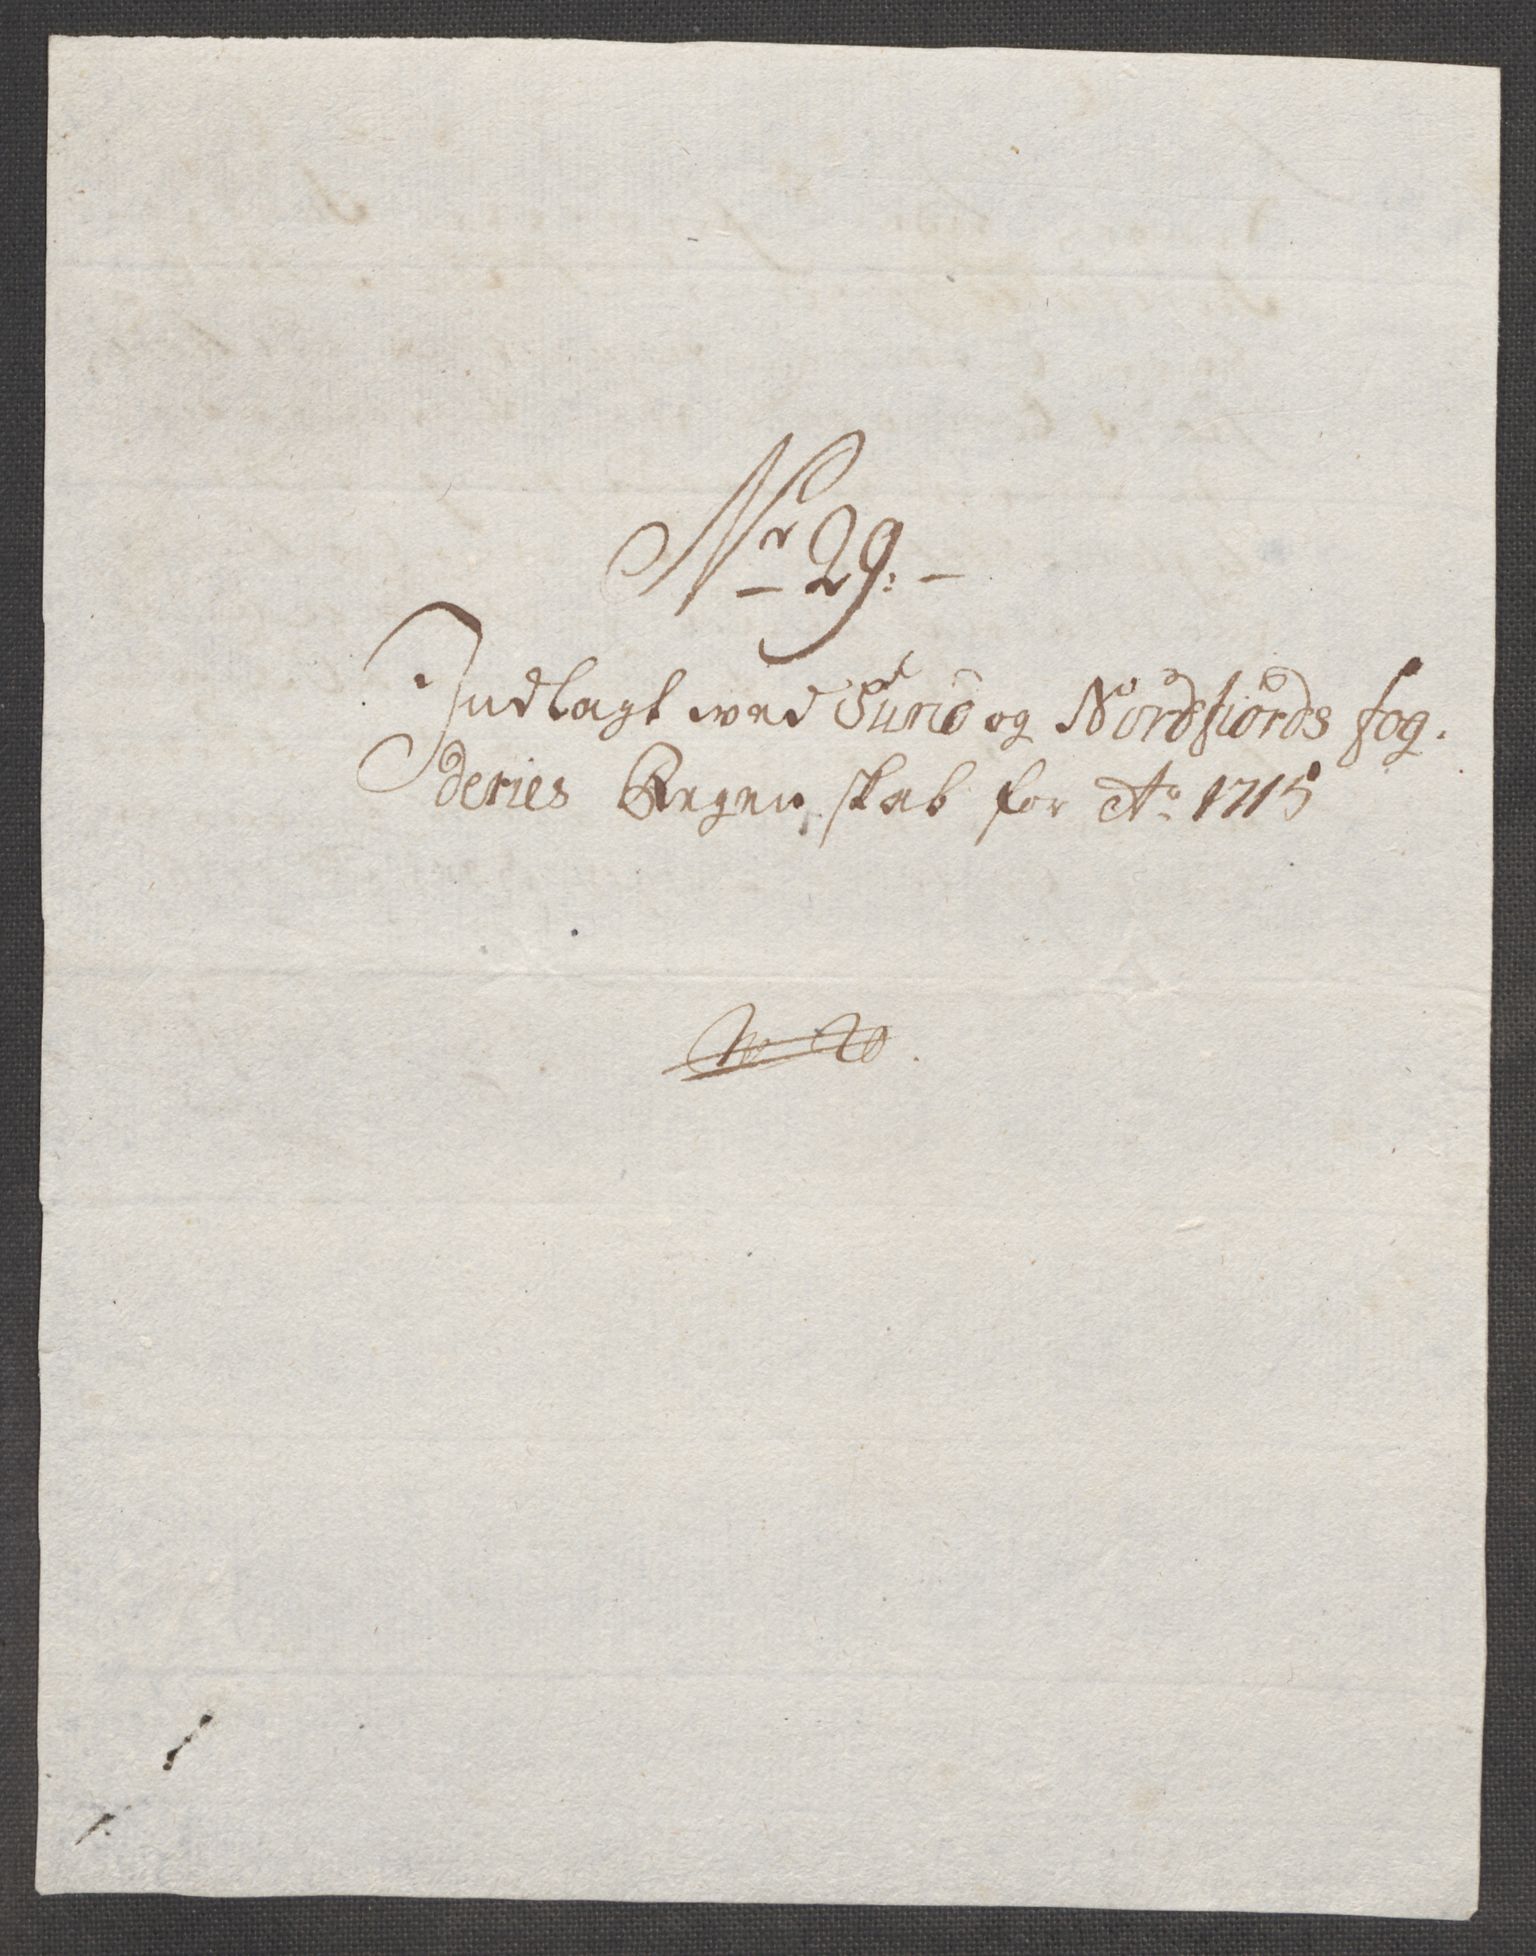 Nr 29:-
Indlagt wed Sund og Nordfiords fog-
deries Regenskab for Ao 1715